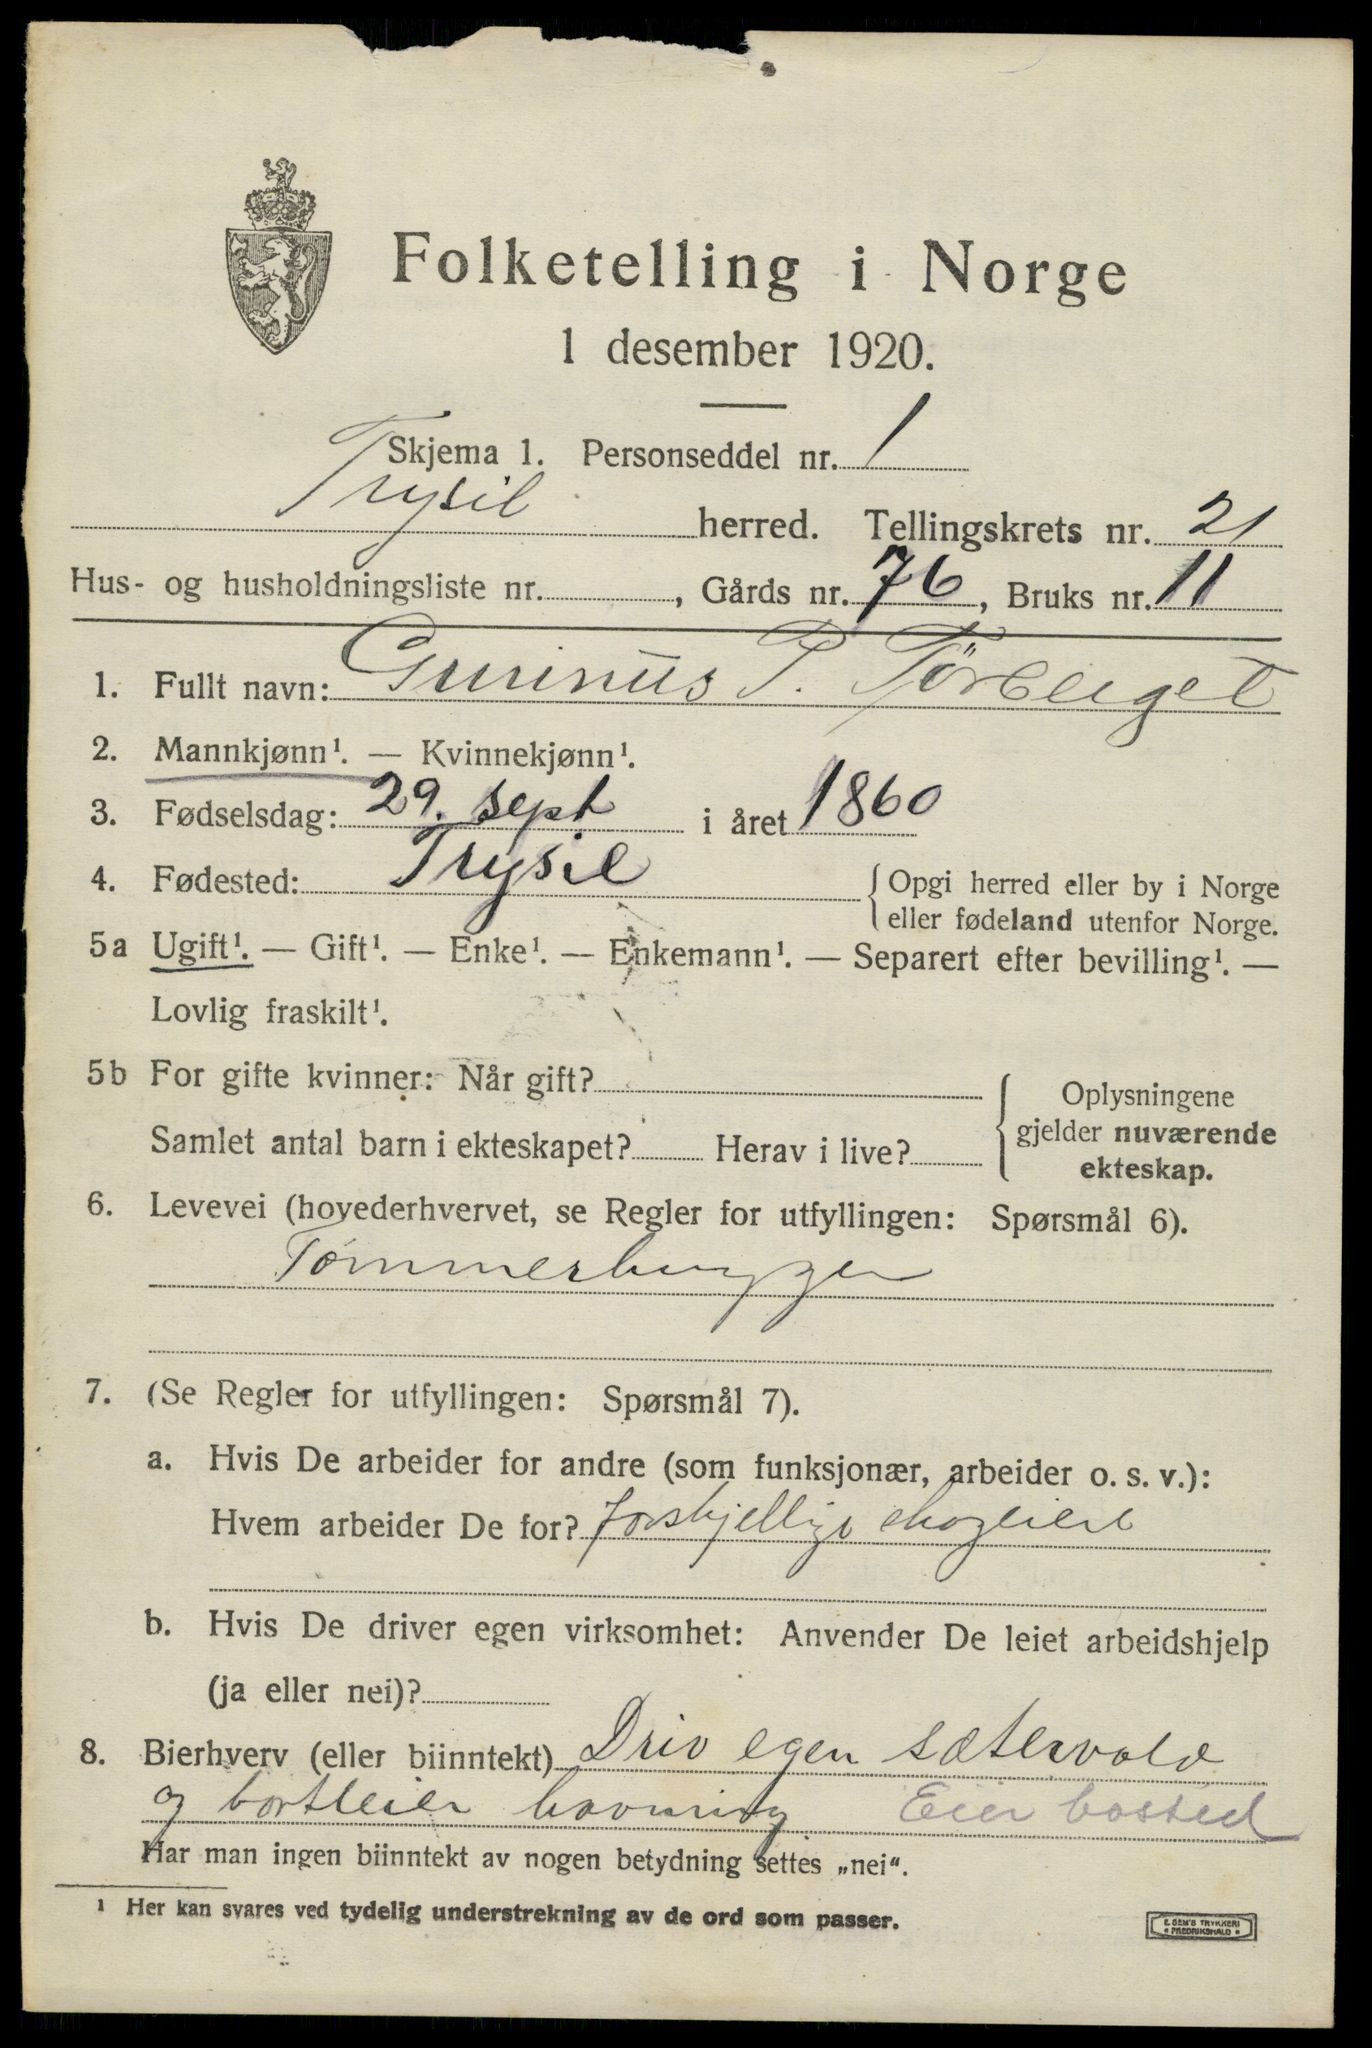 Folketelling i Norge
1 desember 1920.
Skjema 1. Personseddel nr. 1
Trysil herred. Tellingskrets nr. 21
Hus- og husholdningsliste nr. , Gårds nr. 76, Bruks nr. 11
1. Fullt navn: Gurinus P. Törberget
2. Mannkjønn¹. — Kvinnekjønn¹.
3. Fødselsdag: 29. sept i året 1860
4. Fødested: Trysil { Opgi herred eller by i Norge
eller fødeland utenfor Norge.
5a Ugift¹. — Gift¹. — Enke¹. — Enkemann¹. — Separert efter bevilling¹. —
Lovlig fraskilt¹.
5b For gifte kvinner: Når gift?
Samlet antal barn i ekteskapet? Herav i live?
{ Oplysningene
gjelder nuværende
ekteskap.
6. Levevei (hovederhvervet, se Regler for utfyllingen: Spørsmål 6).
Tømmerhugger
7. (Se Regler for utfyllingen: Spørsmål 7).
a. Hvis De arbeider for andre (som funksjonær, arbeider o. s. v.):
Hvem arbeider De for? forskjellige skogeiere
b. Hvis De driver egen virksomhet: Anvender De leiet arbeidshjelp
(ja eller nei)?
8. Bierhverv (eller biinntekt) Driv egen sætervold
og bortleier havning Eier bosted
Har man ingen biinntekt av nogen betydning settes „nei“.
¹ Her kan svares ved tydelig understrekning av de ord som passer.
E. SEM'S TRYKKERI
FREDRIKSHALD